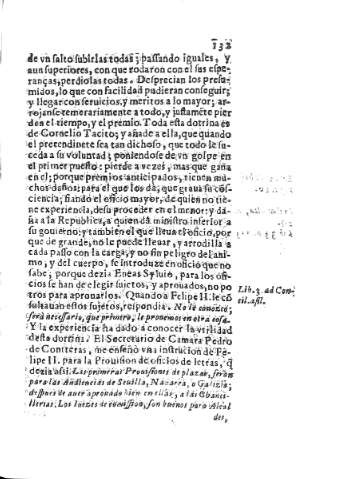 132
de vn salto subirlas todas; passando iguales, y
aun superiores, con que rodaron con el sus espe-
ranças, perdiolas todas. Desprecian los presu-
midos, lo que con facilidad pudieran conseguir;
y llegar con seruicios, y meritos a lo mayor; ar-
rojanse temerariamente a todo, y justamẽte pier
den el tiempo, y el premio. Toda esta dotrina es
de Cornelio Tacito; y añade ella, que quando
el pretendiente sea tan dichoso, que todo le su-
ceda a su voluntad; poniendose de vn golpe en
el primer puesto: pierde a vezes, mas que gana
en el; porque premios anticipados, tienen mu-
chos daños: para el que los dà, que graua su cõs-
ciencia; fiando el oficio mayor, de quien no tie-
ne experiencia, de su proceder en el menor: y da-
ña a la Republica, a quien dà ministro inferior a
su gouierno: y tambien el que lleua el oficio, por
que de grande, no le puede lleuar, y arrodilla a
cada passo con la carga; y no sin peligro del ani-
mo, y del cuerpo, se introduze en oficio que no
sabe; porque dezia Eneas Syluio, para los ofi-
cios se han de elegir sujetos, y aprouados, no po
tros para aprouarlos. Quando a Felipe II. le cõ
sultauan estos sujetos, respondia. No le conozco;
serà necessario, que primero, le prouemos en otra cosa.
Y la experiencia ha dado a conocer la vtilidad
desta dotrina. El Secretario de Camara Pedro
de Contreras, me enseñò vna instrucion de Fe-
lipe II. para la Prouision de oficios de letras, q̃
dezia assi: Las primeras Prouisiones de plazas, seran
para las Audiencias de Seuilla, Nauarra, o Galizia;
despues de auer aprouado bien en ellas, a las Chanci-
llerias. Los Iuezes de comission, son buenos para Alcal
des,
Lib. 3. ad Con-
cil.